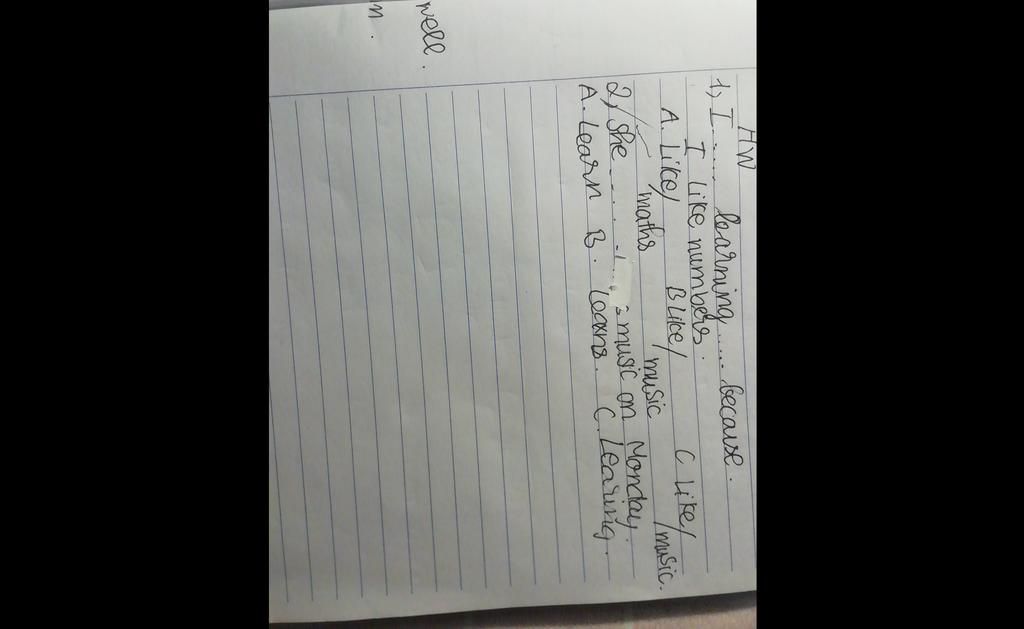 well.
n.
HW
1, I ..... learning ..... because.
I like numbers.
A. Like/ B Like/ C Like/
maths music /music.
2, She ........ music on Monday.
A. Learn B. Learns. C. Learing.